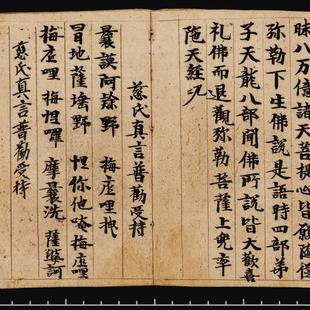 昧八万億諸天菩提心皆願隨從
弥勒下生佛說是語時四部弟
子天龍八部聞佛所說皆大歡喜
礼佛而退觀弥勒菩薩上兜率
陁天經
慈氏真言普勸受持
曩謨阿野 梅底哩拽
冐地薩埵野 怛你他唵梅底哩
梅底哩 梅怛囉 摩曩洗 薩嚩訶
慈氏真言普勸受持